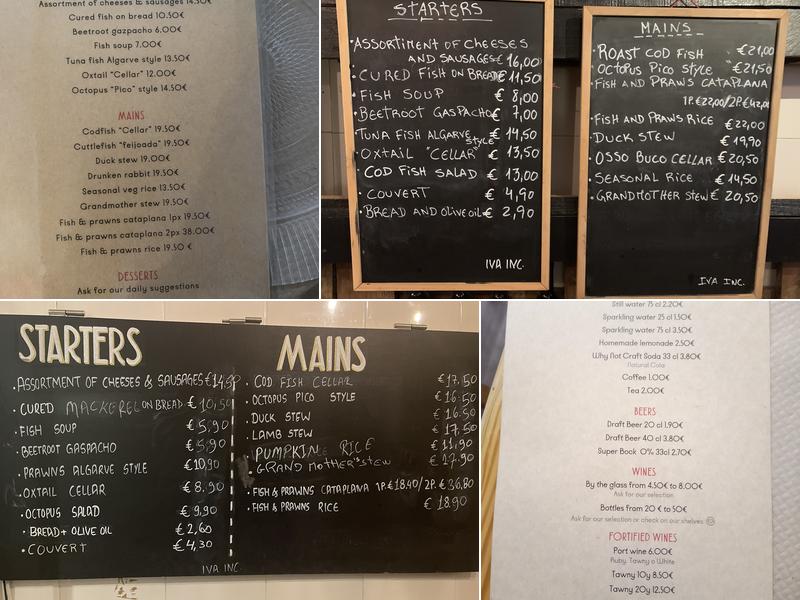 Assortment of cheeses & sausages 14.50€
Cured fish on bread 10.50€
Beetroot gazpacho 6.00€
Fish soup 7.00€
Tuna fish Algarve style 13.50€
Oxtail "Cellar" 12.00€
Octopus "Pico" style 14.50€
MAINS
Codfish "Cellar" 19.50€
Cuttlefish "feijoada" 19.50€
Duck stew 19.00€
Drunken rabbit 19.50€
Seasonal veg rice 13.50€
Grandmother stew 19.50€
Fish & prawns cataplana 1px 19.50€
Fish & prawns cataplana 2px 38.00€
Fish & prawns rice 19.50 €
DESSERTS
Ask for our daily suggestions
STARTERS
·ASSORTIMENT OF CHEESES
AND SAUSAGES € 16,00
·CURED FISH ON BREAD € 11,50
·FISH SOUP € 8,00
·BEETROOT GASPACHO € 7,00
·TUNA FISH ALGARVE STYLE € 14,50
·OXTAIL "CELLAR" € 13,50
·COD FISH SALAD € 13,00
·COUVERT € 4,90
·BREAD AND OLIVE OIL € 2,90
IVA INC.
MAINS
·ROAST COD FISH €21,00
·OCTOPUS PICO STYLE €21,50
·FISH AND PRAWS CATAPLANA
1P.€22,00/2P.€42,00
·FISH AND PRAWS RICE €22,00
·DUCK STEW € 19,90
·OSSO BUCO CELLAR €20,50
·SEASONAL RICE € 14,50
·GRANDMOTHER STEW € 20,50
IVA INC.
STARTERS
·ASSORTMENT OF CHEESES & SAUSAGES €14.50
·CURED MACKEREL ON BREAD € 10,50
·FISH SOUP € 5,90
·BEETROOT GASPACHO € 5,90
·PRAWNS ALGARVE STYLE €10,90
·OXTAIL CELLAR € 8.90
·OCTOPUS SALAD € 9,90
·BREAD + OLIVE OIL € 2,60
·COUVERT € 4,30
MAINS
·COD FISH CELLAR € 17.50
·OCTOPUS PICO STYLE € 16.50
·DUCK STEW € 16.50
·LAMB STEW € 17,50
·PUMPKINE RICE € 11,90
·GRAND MOTHER'S STEW € 17.90
·FISH & PRAWNS CATAPLANA 1P.€18.40/2P.€ 36,80
·FISH & PRAWNS RICE € 18.90
IVA INC.
Still water 75 cl 2.20€
Sparkling water 25 cl 1.50€
Sparkling water 75 cl 3.50€
Homemade lemonade 2.50€
Why Not Craft Soda 33 cl 3.80€
Natural Cola
Coffee 1.00€
Tea 2.00€
BEERS
Draft Beer 20 cl 1.90€
Draft Beer 40 cl 3.80€
Super Bock 0% 33cl 2.70€
WINES
By the glass from 4.50€ to 8.00€
Ask for our selection
Bottles from 20 € to 50€
Ask for our selection or check on our shelves
FORTIFIED WINES
Port wine 6.00€
Ruby, Tawny o White
Tawny 10y 8.50€
Tawny 20y 12.50€